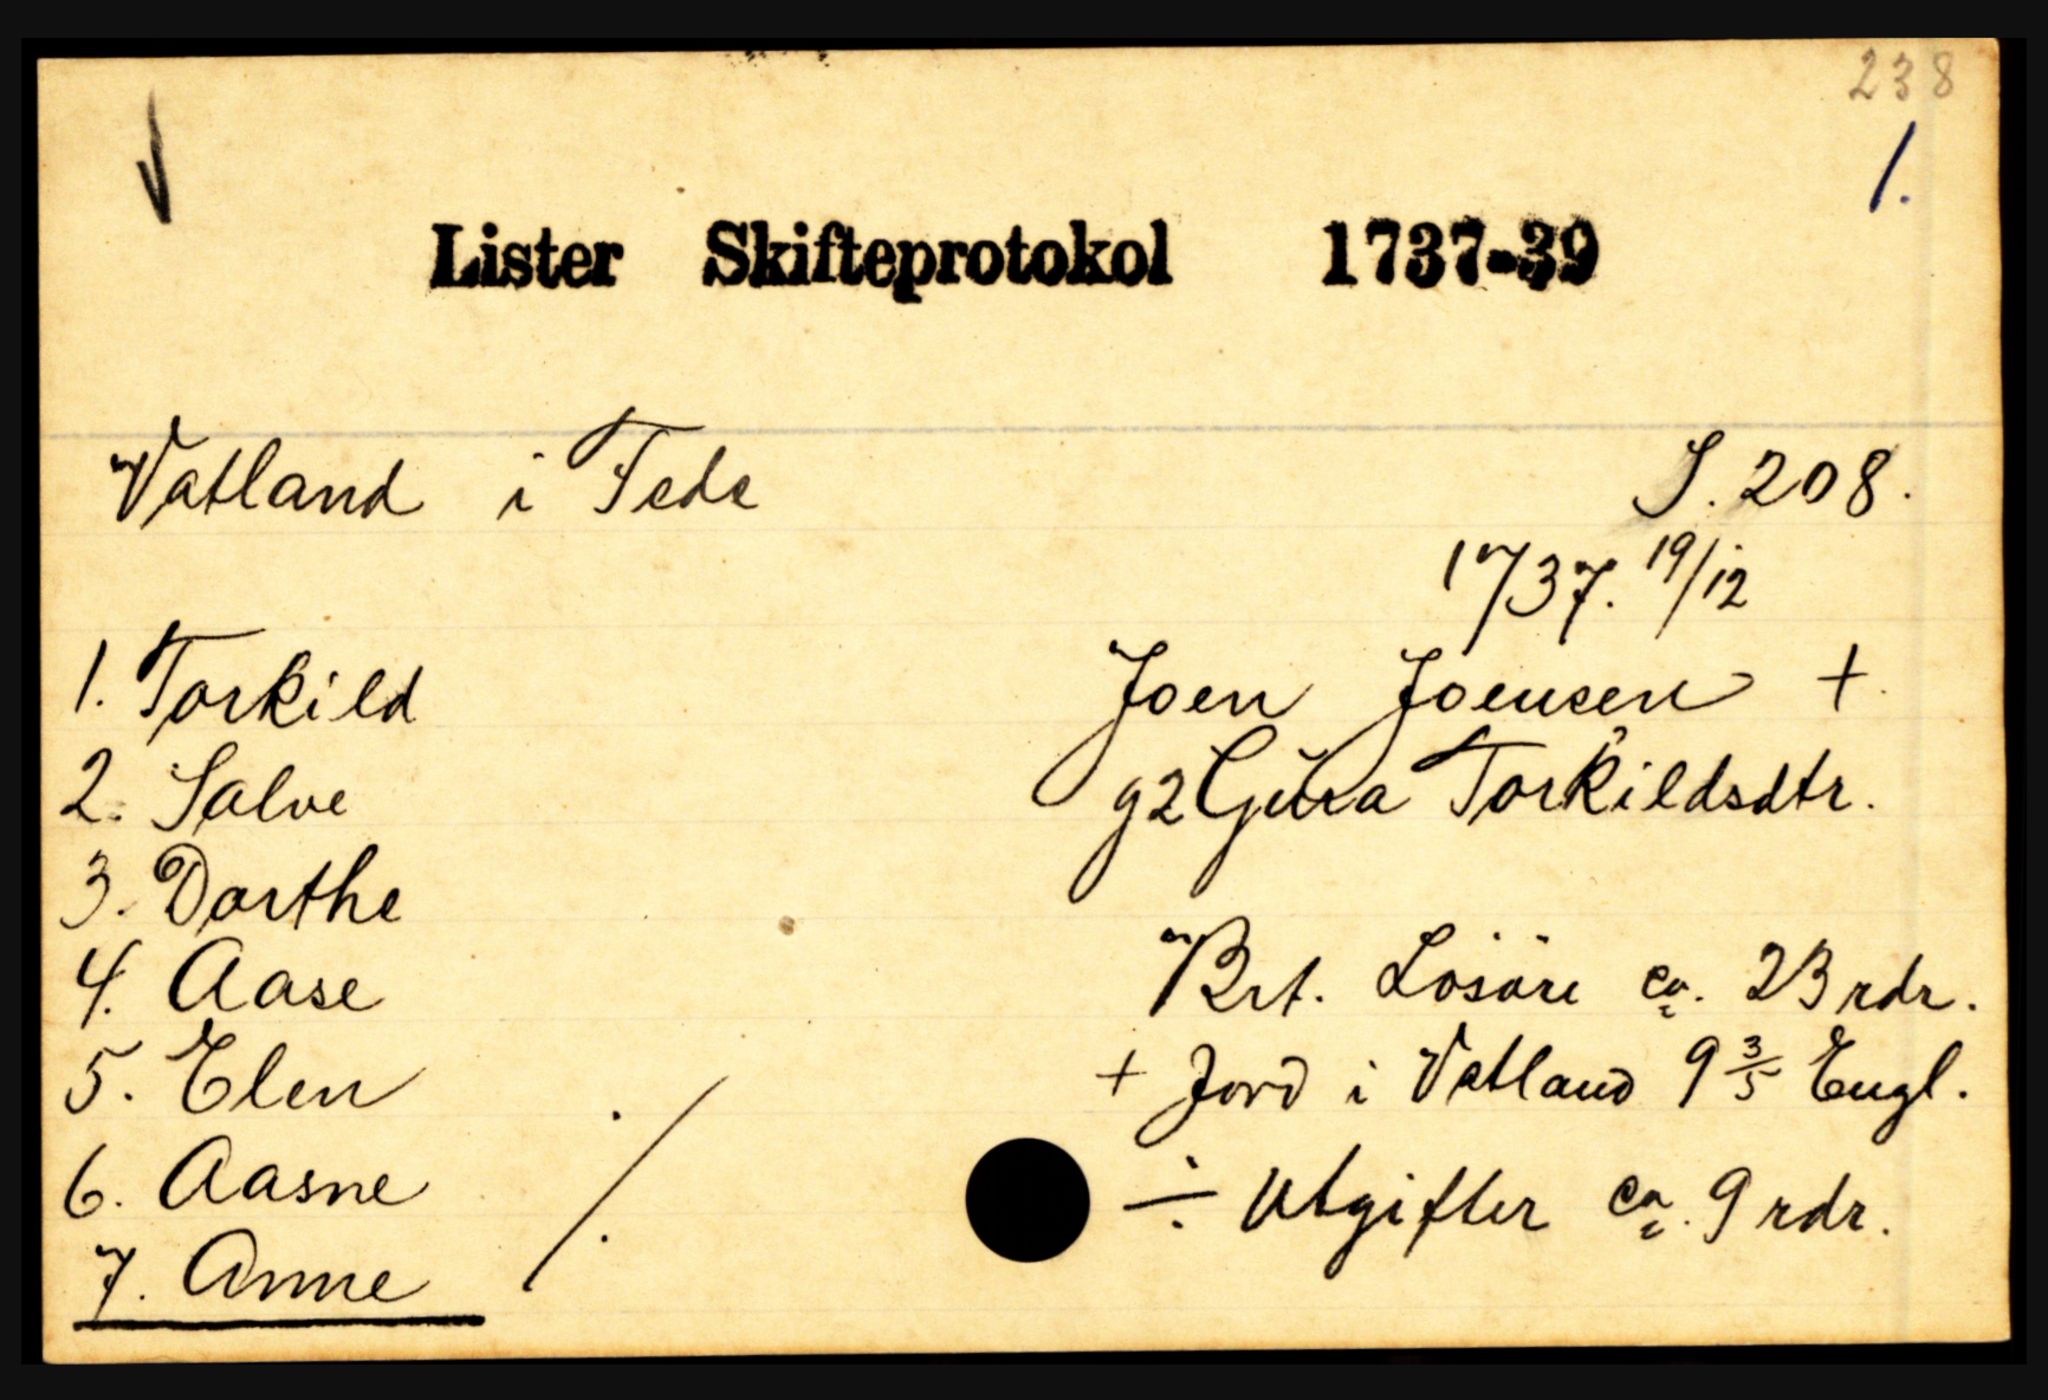 238
1.
Lister Skifteprotokol 1737-39
Vatland i Fede S. 208.
1737. 19/12
1. Torkild Joen Joensen +
2. Salve g2 Gura Torkildsdtr.
3. Dorthe
4. Aase Brt. Lösöre ca. 23 rdr.
5. Elen + Jord i Vatland 9 3/5 Engl.
6. Aasne ./. ÷ Utgifter ca. 9 rdr.
7. Anne